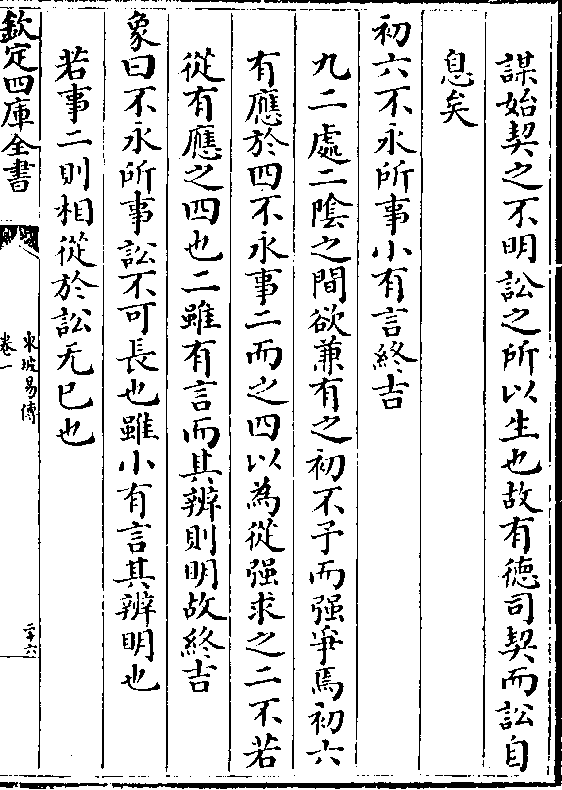 謀始契之不明訟之所以生也故有德司契而訟自
息矣
初六不永所事小有言終吉
九二處二陰之間欲兼有之初不予而强爭焉初六
有應於四不永事二而之四以為從强求之二不若
從有應之四也二雖有言而其辨則明故終吉
象曰不永所事訟不可長也雖小有言其辨明也
若事二則相從於訟无已也
欽定四庫全書
東坡易傳
卷一
二十六